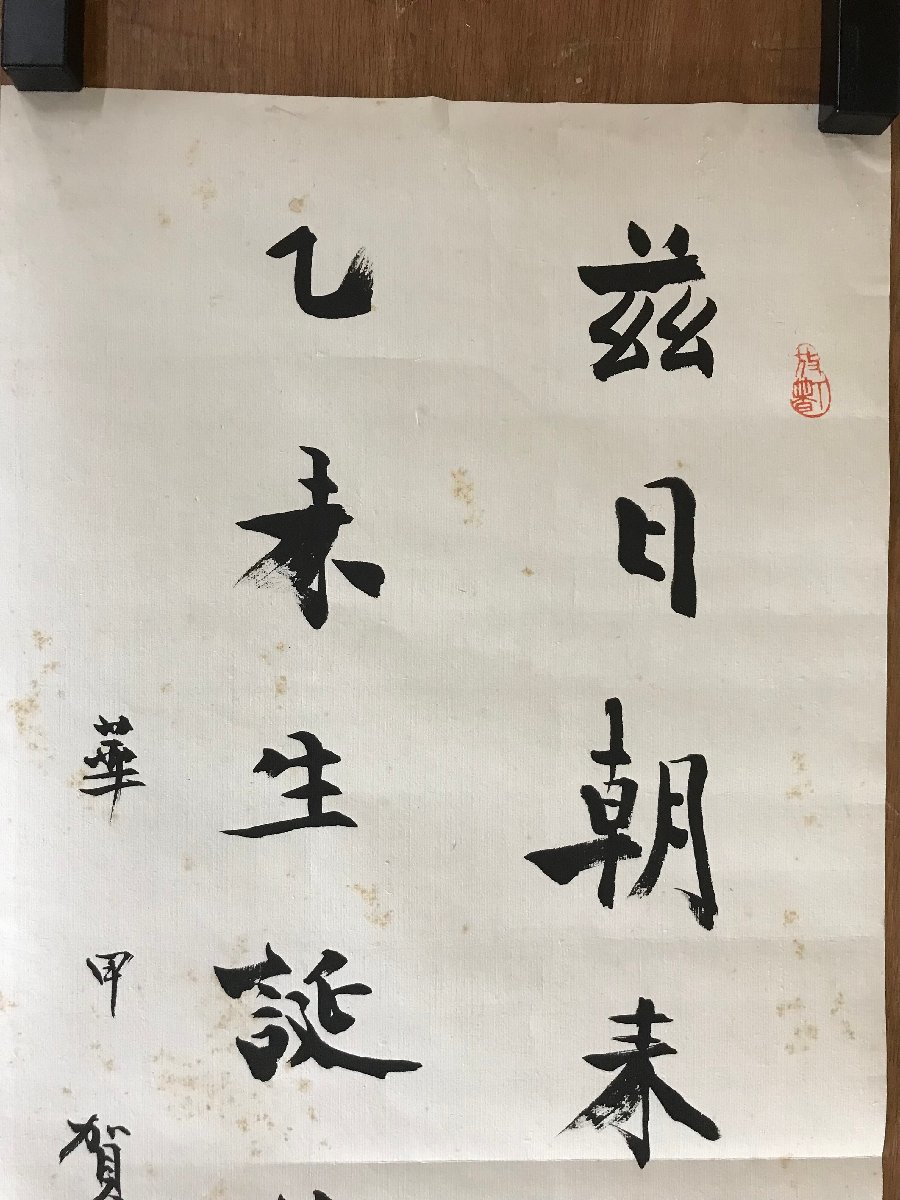 兹日朝来
乙未生誕
華甲賀